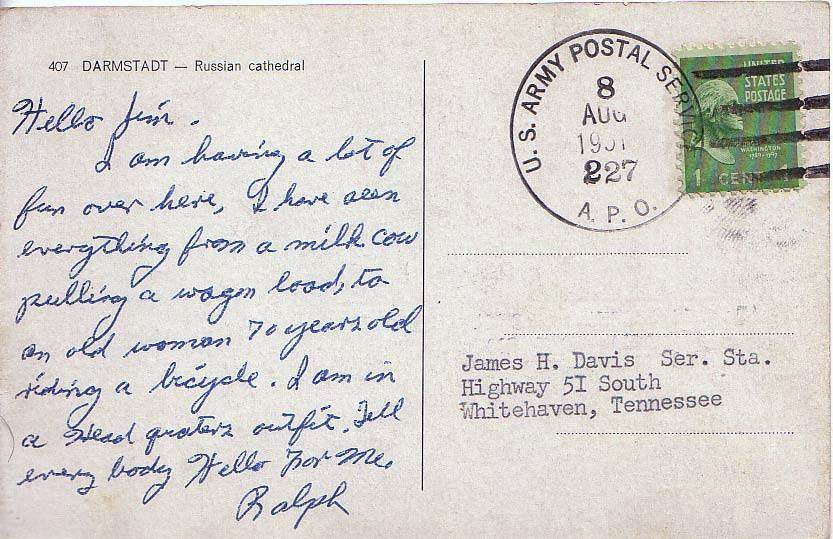 407 DARMSTADT — Russian cathedral
Hello Jim.
I am having a lot of
fun over here, I have seen
everything from a milk cow
pulling a wagon load, to
an old woman 70 years old
riding a bicycle. I am in
a Head quaters outfit. Tell
every body Hello For Me.
Ralph
U. S. ARMY POSTAL SERVICE
8
AUG
1951
227
A. P. O.
UNITED
STATES
POSTAGE
WASHINGTON
1789-1797
1 CENT
James H. Davis Ser. Sta.
Highway 5I South
Whitehaven, Tennessee